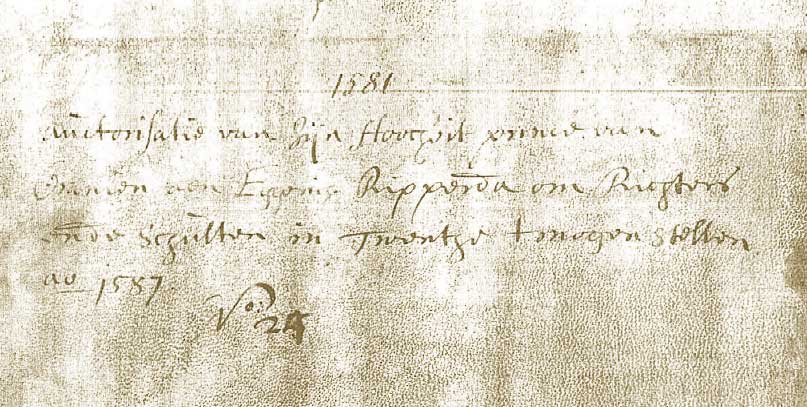 1581
Auctorisatie van Zijn Hoocheit prince van
Oranien aen Eggerick Ripperda om Richters
ende Schulten in Twenthe t mogen stellen
ao 1587.
No: 24